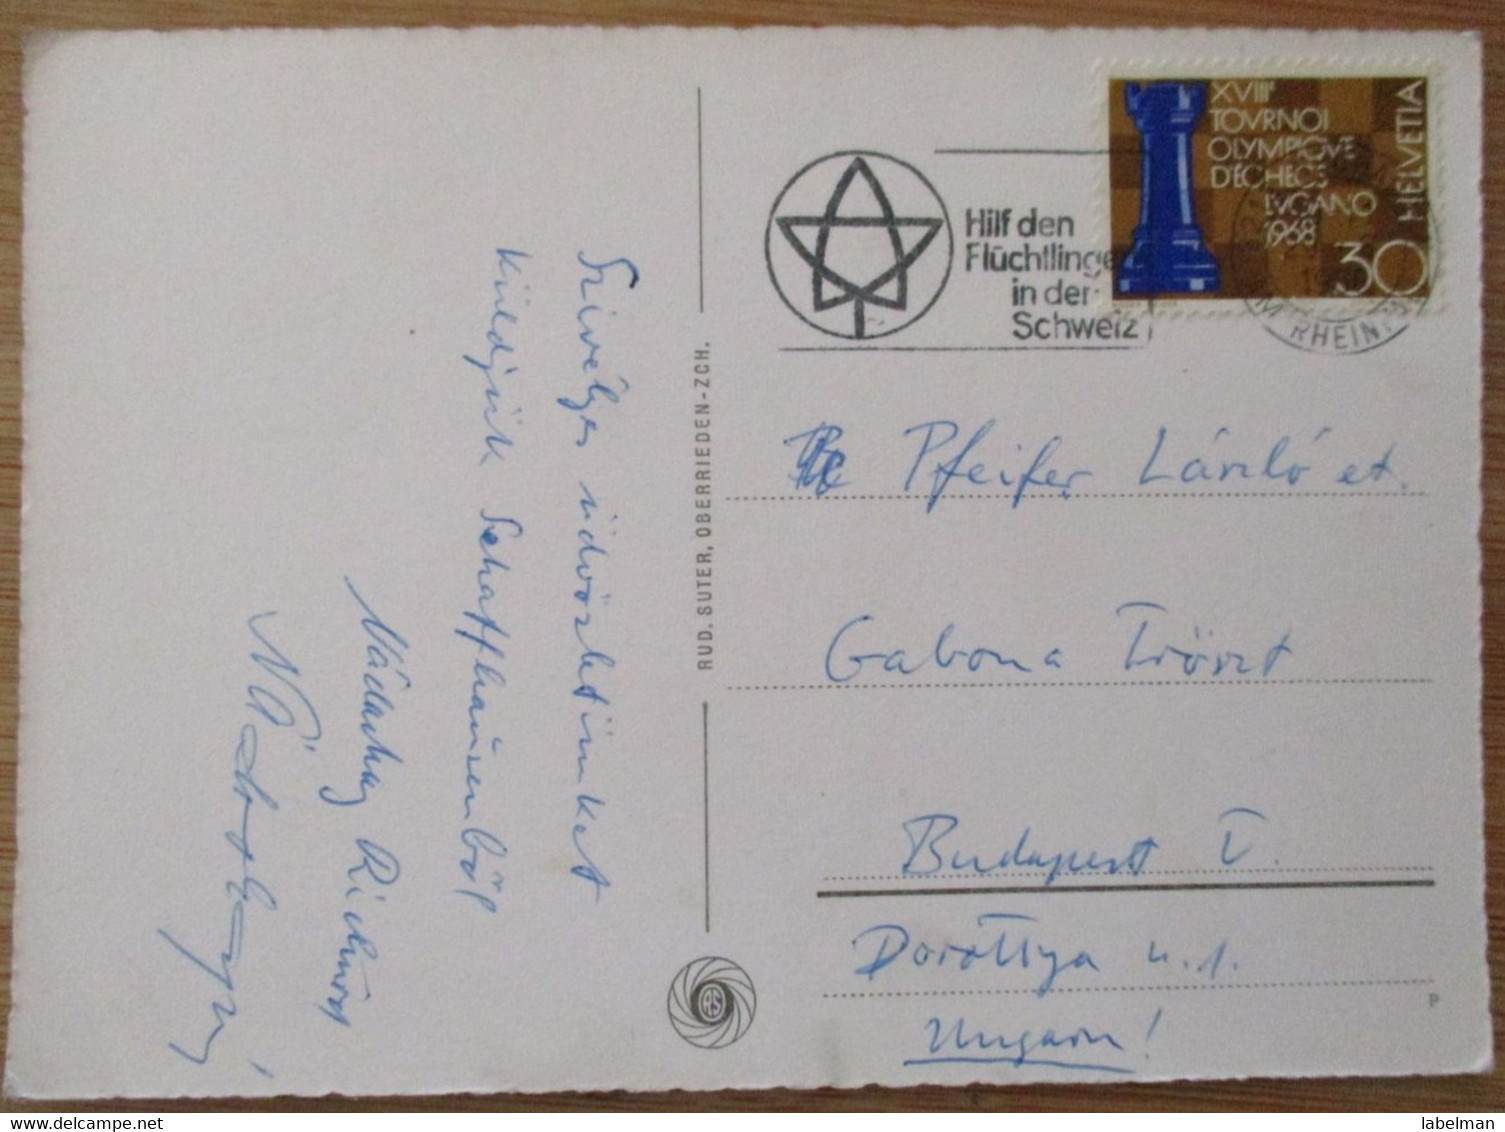 Szívélyes üdvözletünket
küldjük Schaffhausenból
Nádasdy Richárd
RUD. SUTER, OBERRIEDEN-ZCH.
Hilf den
Flüchtlinge
in der
Schweiz
XVIIIe
TOVRNOI
OLYMPIQVE
D'ECHECS
LVGANO
1968
30
HELVETIA
RHEIN
Pfeifer László et.
Gabona Tröszt
Budapest V.
Dorottya u. 1.
Ungarn!
P
labelman
delcampe.net